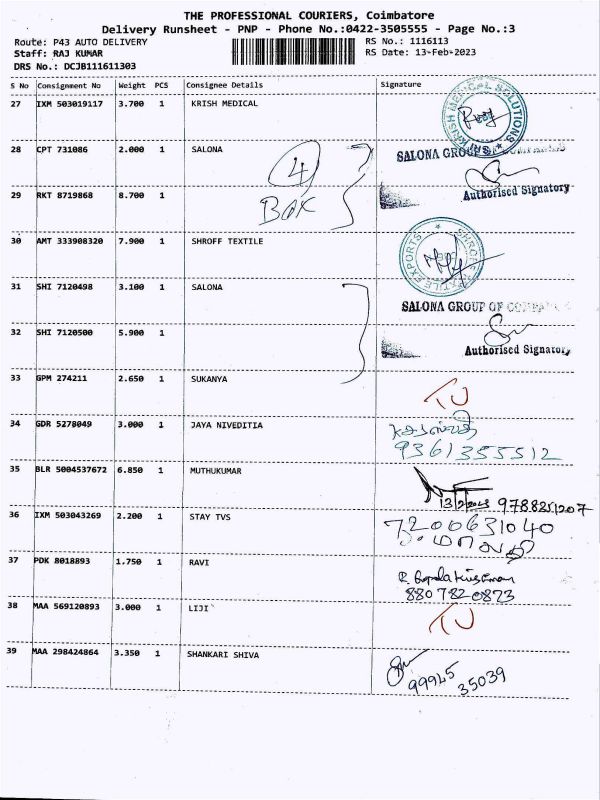 THE PROFESSIONAL COURIERS, Coimbatore
Delivery Runsheet - PNP - Phone No.:0422-3505555 - Page No.:3
Route: P43 AUTO DELIVERY RS No.: 1116113
Staff: RAJ KUMAR RS Date: 13-Feb-2023
DRS No.: DCJB111611303
S No Consignment No Weight PCS Consignee Details Signature
27 IXM 503019117 3.700 1 KRISH MEDICAL
KRISH MEDICAL SOLUTIONS
28 CPT 731086 2.000 1 SALONA
SALONA GROUP OF COMPANIES
4
Authorised Signatory
29 RKT 8719868 8.700 1
BOX
30 AMT 333908320 7.900 1 SHROFF TEXTILE
31 SHI 7120498 3.100 1 SALONA
SALONA GROUP OF
32 SHI 7120500 5.900 1
Authorised Signatory
33 GPM 274211 2.650 1 SUKANYA
TU
34 GDR 5278049 3.000 1 JAYA NIVEDITIA
9361355512
35 BLR 5004537672 6.850 1 MUTHUKUMAR
13/2/2023 9788251207
36 IXM 503043269 2.200 1 STAY TVS
7200631040
37 PDK 8018893 1.750 1 RAVI
R. Gopala Krishnan
8807820873
38 MAA 569120893 3.000 1 LIJI
TU
39 MAA 298424864 3.350 1 SHANKARI SHIVA
99945
35039